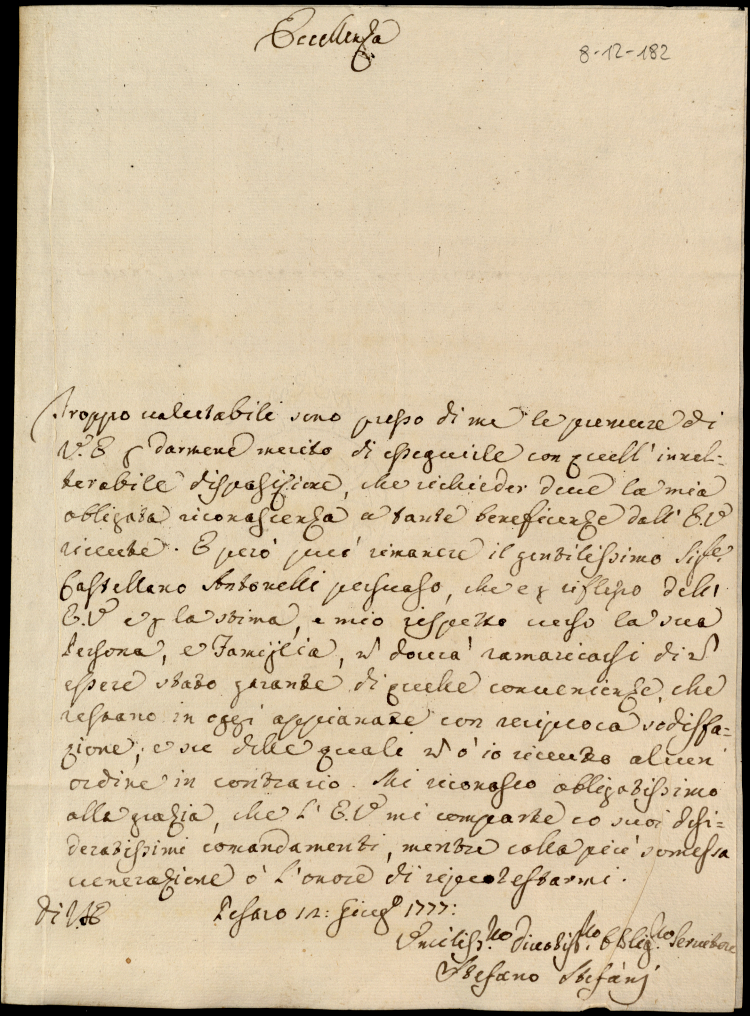 Eccellenza
8-12-182
Troppo valutabili sono presso di me le premure di
V.ra E p darmene merito di esseguirle con quell' inal-
terabile disposizione, che richieder deve la mia
obligata riconoscenza a tante beneficenze dall' E.V
ricevute. E però può rimanere il gentilissimo Sig.re
Castellano Antonelli persuaso, che e p riflesso dell'
E.V e p la stima, e mio rispetto verso la sua
Persona, e Famiglia, ñ dovrà ramaricarsi di ñ
essere stato garante di quelle convenienze, che
restano in oggi appianate con reciproca sodisfa-
zione, e su delle quali ñ ò io ricevuto alcun
ordine in contrario. Mi riconosco obligatissimo
alla grazia, che L' E.V mi comparte co suoi desi-
deratissimi comandamenti, mentre colla più somessa
venerazione ò L'onore di riprotestarmi.
Di V.E Pesaro 12: Giug.o 1777:
Umiliss.mo Divotiss.mo Oblig.mo Servitore
Stefano Stefanj